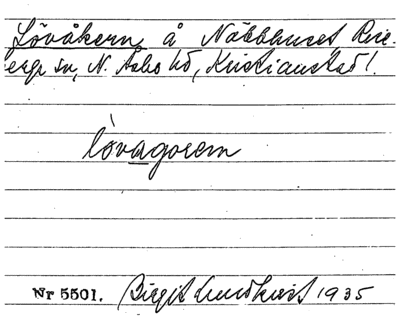 Lövåkern å Näbbhuset Rise-
berga sn, N. Åsbo hd, Kristianstad l.
lòvagorem
Nr 5501. Birgit Lundkvist 1935